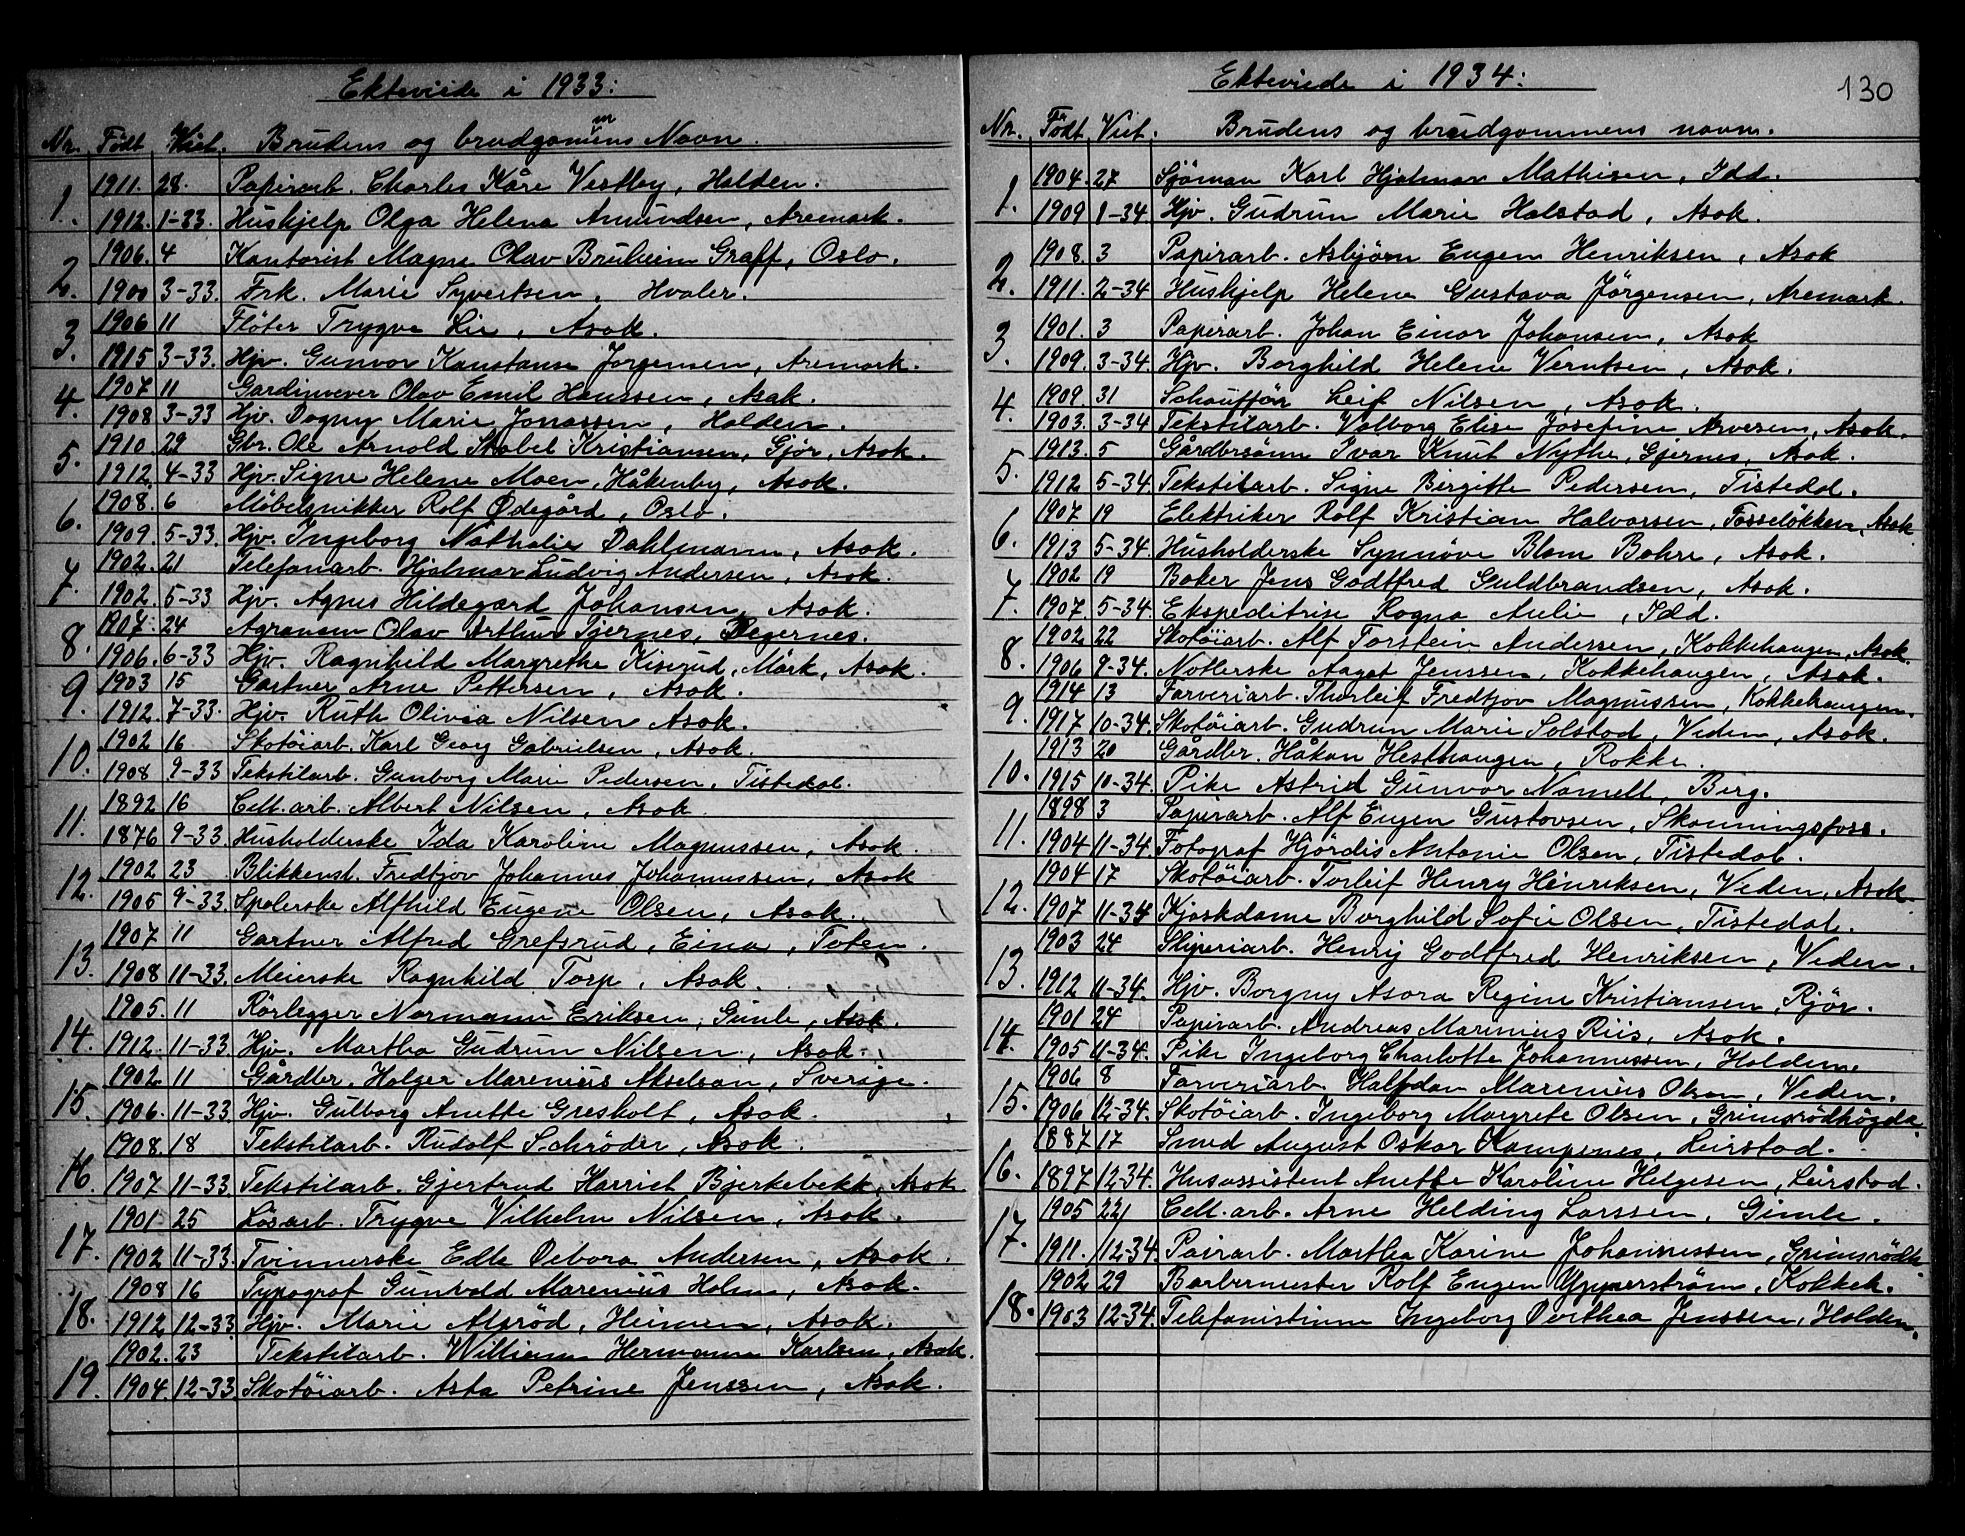 Ekteviede i 1933:
Nr. Født Viet. Brudens og brudgommens Navn.
1. 1911. 28. Papirarb. Charles Kåre Vestby, Halden.
1912. 1-33. Huskjelp Olga Helena Amundsen, Aremark.
2. 1906. 4 Kontorist Magne Olav Bruheim Graff, Oslo.
1900 3-33. Frk. Marie Syvertsen, Hvaler.
3. 1906 11 Fløter Trygve Lie, Asak.
1915 3-33. Hjv. Gunvor Konstanse Jørgensen, Aremark.
4. 1907 11 Gardinvever Olav Emil Hanssen, Asak.
1908 3-33 Hjv. Dagny Marie Jonassen, Halden.
5. 1910. 29 Gbr. Ole Arnold Stabel Kristiansen, Gjør, Asak.
1912. 4-33 Hjv. Signe Helene Moen, Håkenby, Asak.
6. 1908. 6 Møbelsnikker Rolf Ødegård, Oslo.
1909. 5-33. Hjv. Ingeborg Nathalie Dahlmann, Asak.
7. 1902. 21 Telefonarb. Hjalmar Ludvig Andersen, Asak.
1902. 5-33 Hjv. Agnes Hildegard Johansen, Asak.
8. 1907. 24 Agronom Olav Arthur Tjernes, Degernes.
1906. 6-33 Hjv. Ragnhild Margrethe Kiserud, Mørk, Asak.
9. 1903 15 Gartner Arne Pettersen, Asak.
1912. 7-33. Hjv. Ruth Olivia Nilsen Asak.
10. 1902 16 Skotøiarb. Karl Georg Gabrielsen, Asak.
1908 9-33 Tekstilarb. Gunborg Marie Pedersen, Tistedal.
11. 1892 16 Cell. arb. Albert Nilsen, Asak.
1876 9-33 Husholderske Ida Karoline Magnussen, Asak.
12. 1902 23 Blikkensl. Fredtjov Johannes Johannessen, Asak
1905 9-33. Spolerske Alfhild Eugene Olsen, Asak.
13. 1907 11 Gartner Alfred Grefsrud, Eina, Toten.
1908 11-33. Meierske Ragnhild Torp, Asak.
14. 1905. 11 Rørlegger Normann Eriksen, Gimle, Asak.
1912. 11-33 Hjv. Martha Gudrun Nilsen, Asak.
15. 1902. 11 Gårdbr. Holger Marenius Akselson, Sverige.
1906. 11-33. Hjv. Gulborg Anette Gresholt, Asak.
16. 1908. 18 Tekstilarb. Rudolf Schrøder, Asak.
1907 11-33. Tekstilarb. Gjertrud Harriet Bjerkebekk, Asak
17. 1901 25 Løsarb. Trygve Vilhelm Nilsen, Asak.
1902 11-33. Tvinnerske Edle Debora Andersen, Asak.
18. 1908 16 Typograf Gunvald Marenius Holm, Asak.
1912 12-33 Hjv. Marie Alsrød, Heimen, Asak.
19. 1902. 23 Tekstilarb. William Hermann Karlsen, Asak.
1904. 12-33 Skotøiarb. Asta Petrine Jenssen, Asak.
130
Ekteviede i 1934:
Nr. Født Viet. Brudens og brudgommens navn.
1. 1904. 27 Sjøman Karl Hjalmar Mathisen, Idd.
1909 1-34 Hjv. Gudrun Marie Halstad, Asak.
2. 1908. 3 Papirarb. Asbjørn Eugen Henriksen, Asak
1911. 2-34 Huskjelp Helene Gustava Jørgensen, Aremark.
3. 1901. 3 Papirarb. Johan Einar Johansen, Asak
1909. 3-34 Hjv. Borghild Helene Verntsen, Asak.
4. 1909. 31 Schauffør Leif Nilsen, Asak.
1903. 3-34 Tekstilarb. Valborg Elise Josefine Arvesen, Asak.
5. 1913. 5 Gårdbrsønn Ivar Knut Nythe, Gjernes, Asak.
1912 5-34. Tekstilarb. Signe Birgitte Pedersen, Tistedal.
6. 1907 19 Elektriker Rolf Kristian Halvorsen, Fosseløkken, Asak
1913 5-34. Husholderske Synnøve Blom Bohre, Asak.
7. 1902 19 Baker Jens Godtfred Guldbrandsen, Asak.
1907. 5-34. Ekspeditrise Ragna Aulie, Idd.
8. 1902 22 Skotøiarb. Alf Torstein Andersen, Kokkehaugen, Asak.
1906 9-34. Notlerske Aagot Jenssen, Kokkehaugen, Asak.
9. 1914 13 Farveriarb. Thorleif Fredtjov Magnussen, Kokkehaugen.
1917 10-34. Skotøiarb. Gudrun Marie Solstad, Veden, Asak.
10. 1913 20 Gårdbr. Håkon Hesthaugen, Rokke.
1915 10-34. Pike Astrid Gunvor Nomell, Berg.
11. 1898 3 Papirarb. Alf Eugen Gustavsen, Skonningsfoss.
1904 11-34. Fotograf Hjørdis Antonie Olsen, Tistedal.
12. 1904 17 Skotøiarb. Torleif Henry Henriksen, Veden, Asak.
1907. 11-34 Kjoskdame Borghild Sofie Olsen, Tistedal.
13. 1903 24 Sliperiarb. Henry Godtfred Henriksen, Veden.
1912 11-34. Hjv. Borgny Asora Regine Kristiansen, Rjør.
14. 1901 24 Papirarb. Andreas Marenius Riis, Asak.
1905 11-34. Pike Ingeborg Charlotte Johannessen, Halden.
15. 1906 8 Farveriarb. Halfdan Marenius Olsen, Veden.
1906 12-34. Skotøiarb. Ingeborg Margrete Olsen, Grimsrødhøgda
16. 1887 17 Smed August Oskar Kampenes, Leirstad.
1897 12-34. Husassistent Anette Karoline Helgesen, Leirstad.
17. 1905 22 Cell. arb. Arne Helding Larssen, Gimle.
1911. 12-34. Pairarb. Martha Karine Johannessen, Grimsrødh.
18. 1902 29 Barbermester Rolf Eugen Ypperstrøm, Kokkeh.
1903 12-34. Telefonistinne Ingeborg Dorthea Jenssen, Halden.